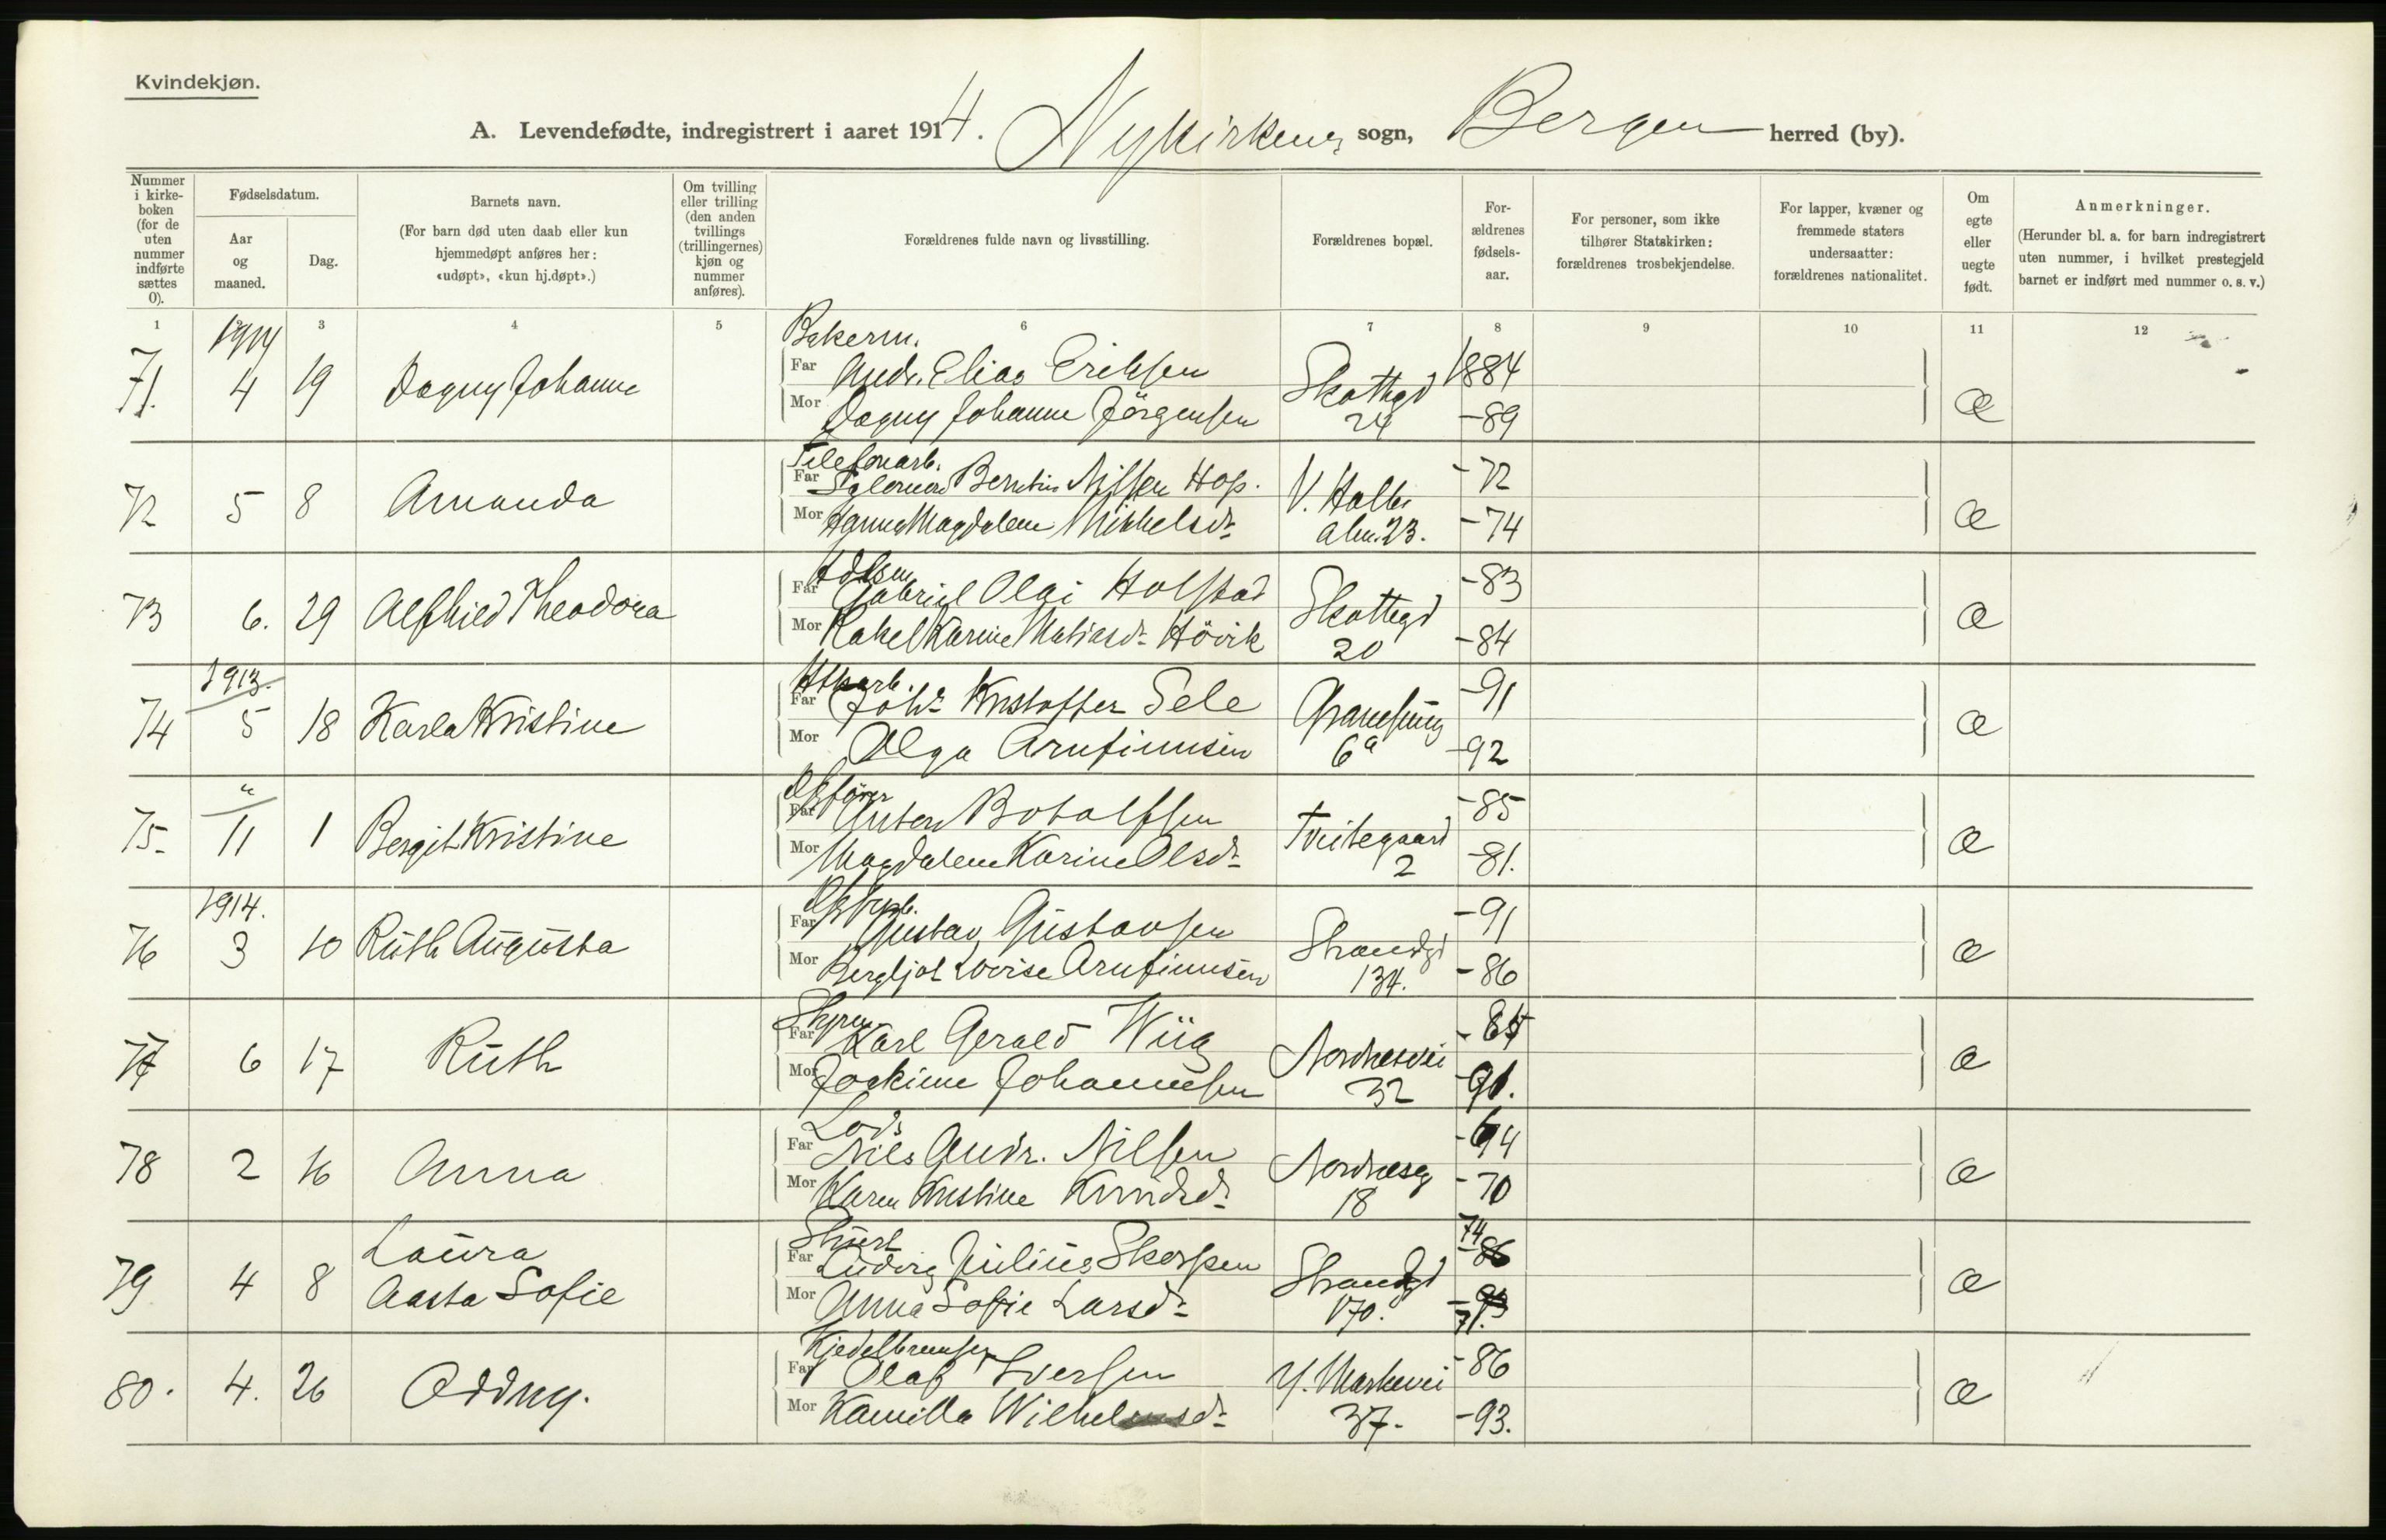 Kvindekjøn.
A. Levendefødte, indregistrert i aaret 1914. Nykirkens sogn, Bergen herred (by).
Nummer i kirke-boken (for de uten nummer indførte sættes 0).
Fødselsdatum.
Aar og maaned.
Dag.
Barnets navn.
(For barn død uten daab eller kun hjemmedøpt anføres her: «udøpt», «kun hj.døpt».)
Om tvilling eller trilling (den anden tvillings (trillingernes) kjøn og nummer anføres).
Forældrenes fulde navn og livsstilling.
Forældrenes bopæl.
For-ældrenes fødsels-aar.
For personer, som ikke tilhører Statskirken: forældrenes trosbekjendelse.
For lapper, kvæner og fremmede staters undersaatter: forældrenes nationalitet.
Om egte eller uegte født.
Anmerkninger.
(Herunder bl. a. for barn indregistrert uten nummer, i hvilket prestegjeld barnet er indført med nummer o. s. v.)
1 2 3 4 5 6 7 8 9 10 11 12
1914
Bakerm.
71. 4 19 Dagny Johanne Far Andr. Elias Eriksen Skottegd 24 1884 æ
Mor Dagny Johanne Jörgensen -89
Telefonarb.
72 5 8 Amanda Far Salomon Berntin Nilsen Hop. V. Holbr alm. 23. -72 æ
Mor Hanna Magdalene Mikkelsdr -74
73 6. 29 Alfhild Theodora Far Gabriel Olai Holstad Skottegd 20 -83 æ
Mor Rakel Karine Matiasdr Hövik -84
1913.
74 5 18 Karla Kristine Far Johs Kristoffer Sele 6a -91 æ
Mor Olga Arnfinnsen -92
"
75. 11 1 Bergit Kristine Far Anton Botolfsen Tveitegaard 2 -85 æ
Mor Magdalene Karine Olsdr -81.
1914.
76 3 10 Ruth Augusta Far Gustav Gustavsen Strandgd 134. -91 æ
Mor Bergljot Lovise Arnfinnsen -86
77 6 17 Ruth Far Karl Gerald Wiig Nordnesvei 32 æ
Mor Joakime Johannesen -91.
Lods
78 2 16 Anna Far Nils Andr. Nilsen Nordnesg 18 æ
Mor Karen Kristine Knudsdr -70
Stuert
79 4 8 Laura Aasta Sofie Far Ludvig Julius Skorpen Strandgd 170. 74 æ
Mor Anna Sofie Larsdr 71.
Kjedelbremser
80. 4. 26 Oddny. Far Olaf Iversen Y. Markevei 37. -86 æ
Mor Kamilla Wilhelmsdr -93.